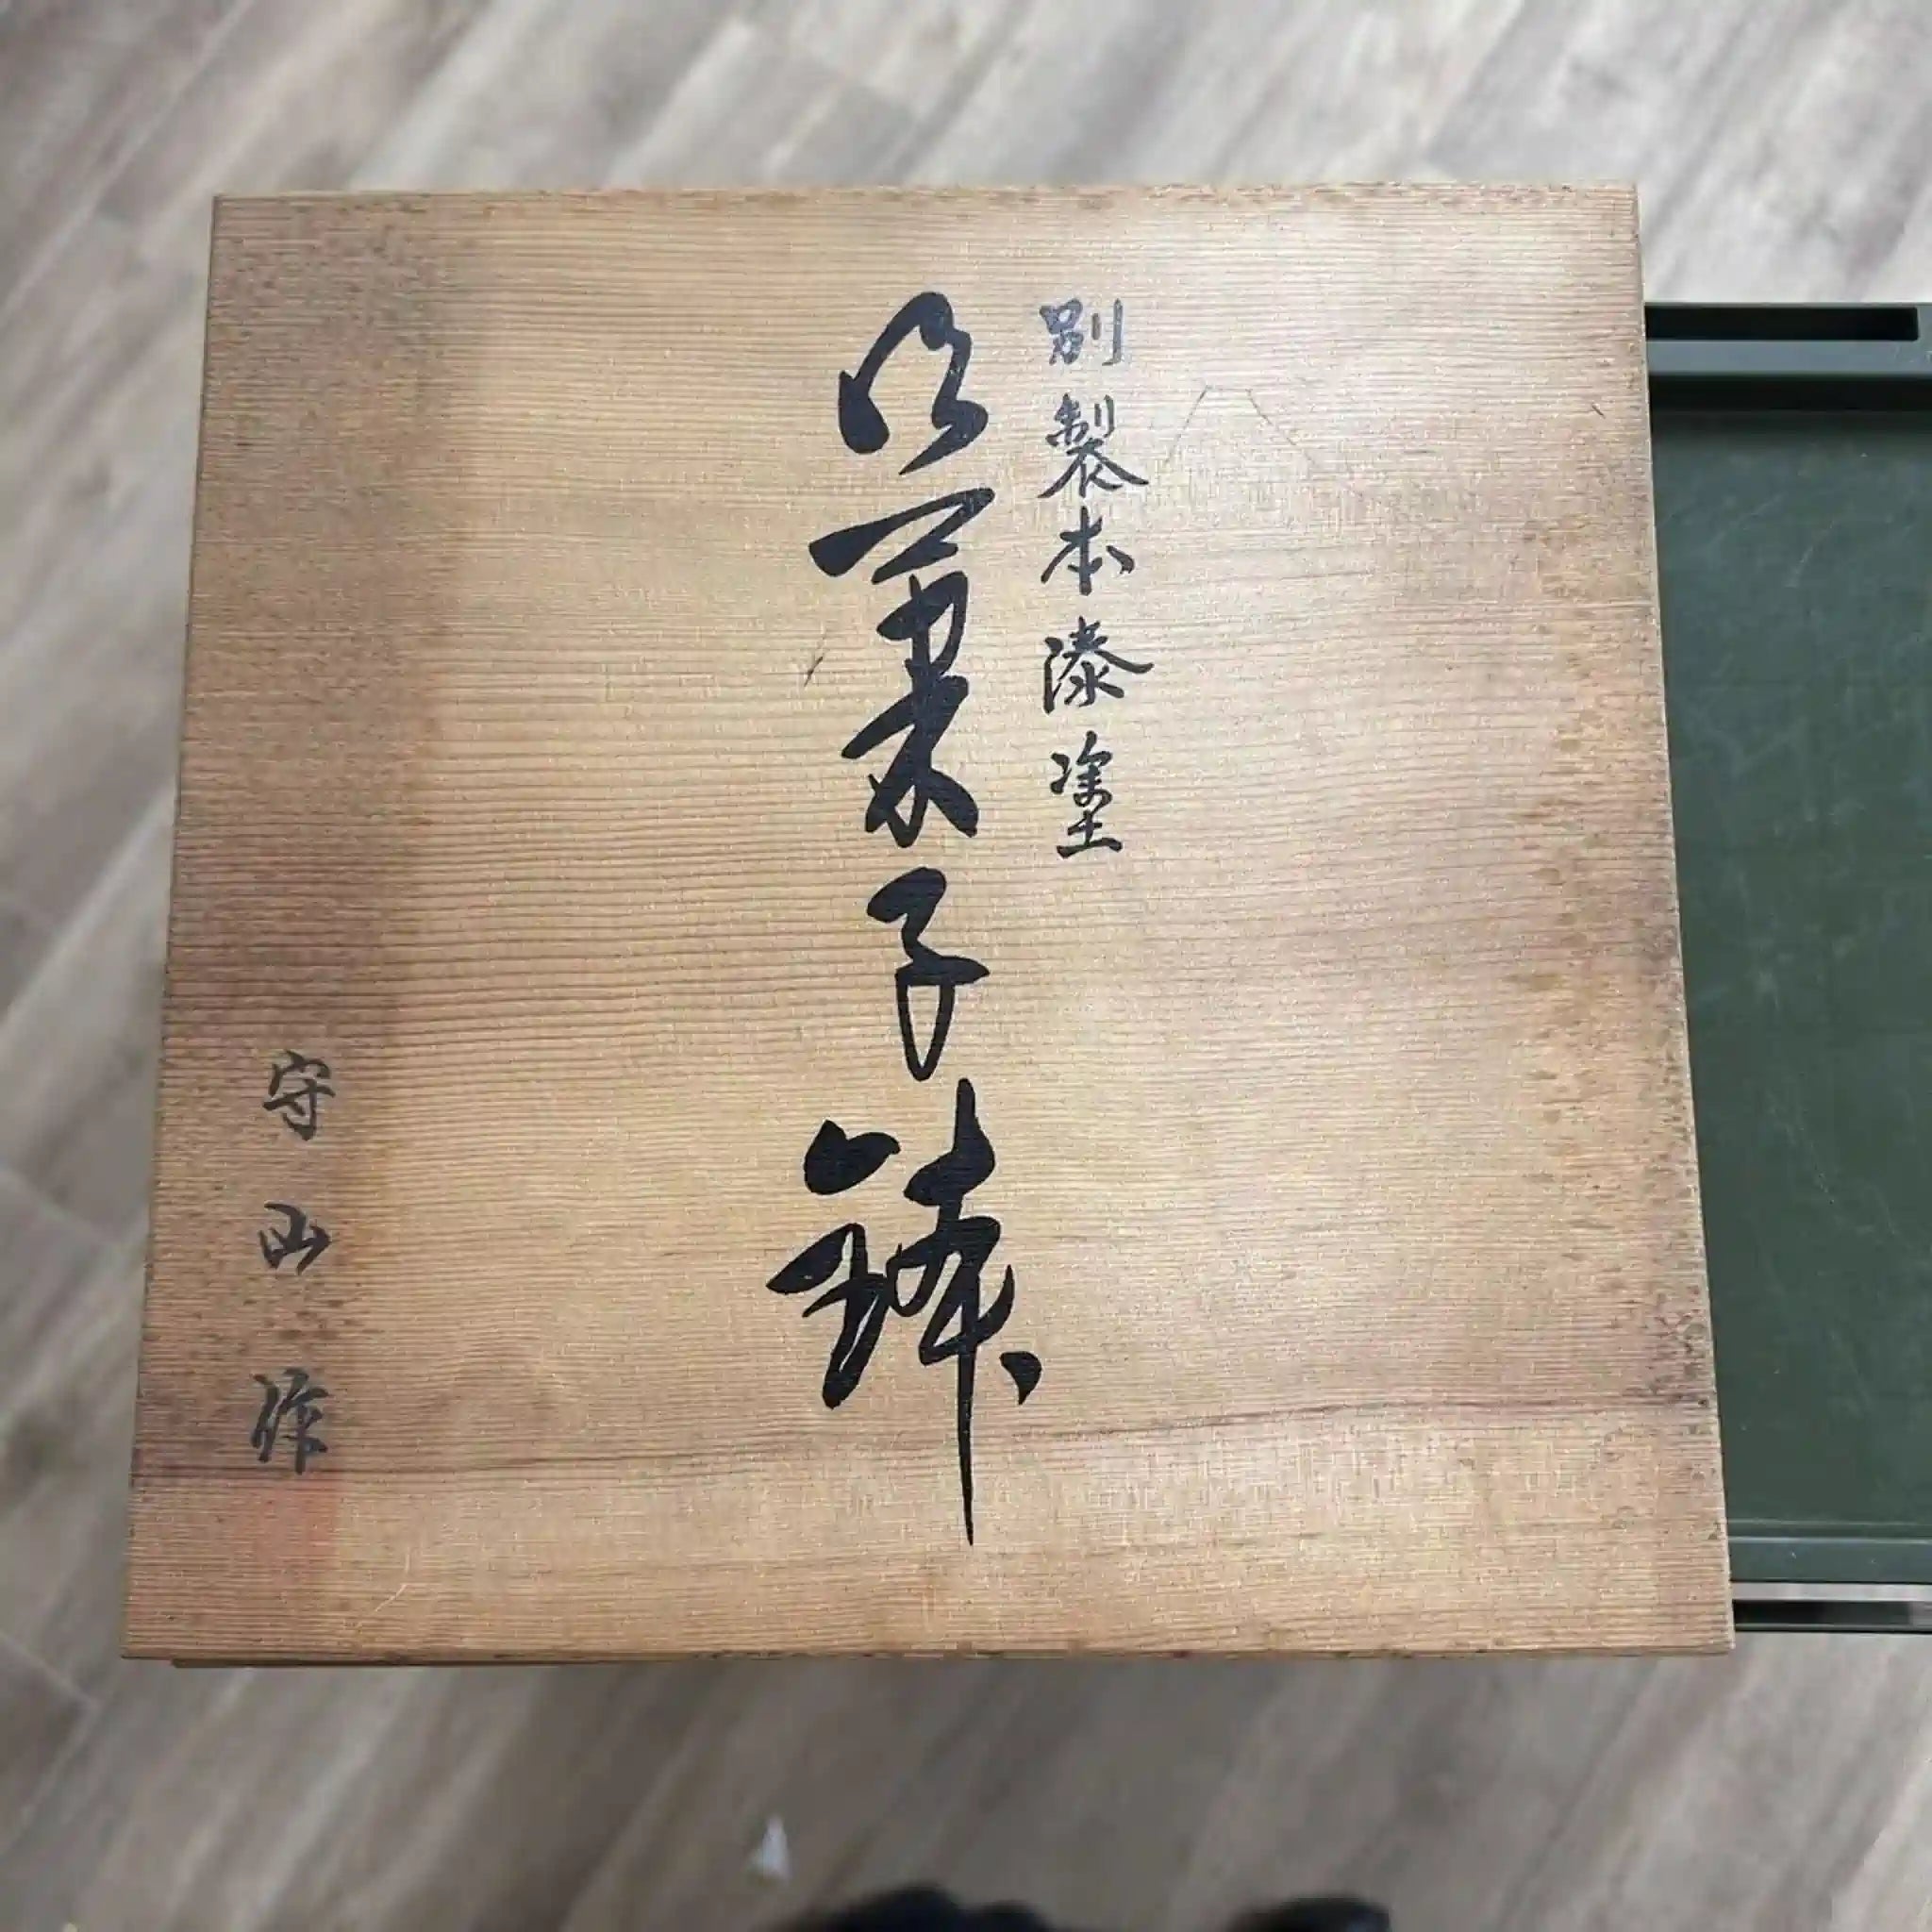 別製本漆塗
御菓子鉢
守山作